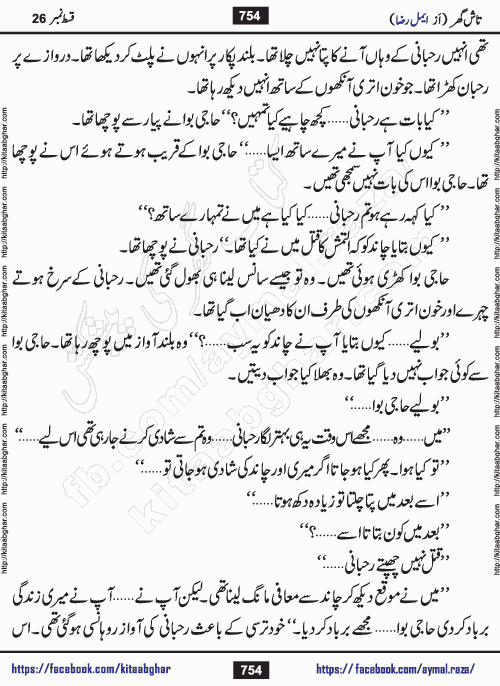 تاش گھر (از ایمل رضا) 754 قسط نمبر 26
تھی انہیں رحبانی کے وہاں آنے کا پتا نہیں چلا تھا۔ بلند پکار پر انہوں نے پلٹ کر دیکھا تھا۔ دروازے پر
رحبان کھڑا تھا۔ جو خون اتری آنکھوں کے ساتھ انہیں دیکھ رہا تھا۔
”کیا بات ہے رحبانی...... کچھ چاہیے کیا تمہیں؟“ حاجی بوا نے پیار سے پوچھا تھا۔
”کیوں کیا آپ نے میرے ساتھ ایسا......“ حاجی بوا کے قریب ہوتے ہوئے اس نے پوچھا
تھا۔ حاجی بوا اس کی بات نہیں سمجھی تھیں۔
”کیا کہہ رہے ہو تم رحبانی...... کیا کیا ہے میں نے تمہارے ساتھ؟“
”کیوں بتایا چاند کو کہ التمش کا قتل میں نے کیا تھا۔“ رحبانی نے پوچھا تھا۔
حاجی بوا کھڑی ہوئی تھیں۔ وہ تو جیسے سانس لینا ہی بھول گئی تھیں۔ رحبانی کے سرخ ہوتے
چہرے اور خون اتری آنکھوں کی طرف ان کا دھیان اب گیا تھا۔
”بولیے...... کیوں بتایا آپ نے چاند کو یہ سب......؟“ وہ بلند آواز میں پوچھ رہا تھا۔ حاجی بوا
سے کوئی جواب نہیں دیا گیا تھا۔ وہ بھلا کیا جواب دیتیں۔
”بولیے حاجی بوا......“
”میں...... وہ...... مجھے اس وقت یہ ہی بہتر لگا رحبانی...... وہ تم سے شادی کرنے جا رہی تھی اس لیے......“
”تو کیا ہوا۔ پھر کیا ہو جاتا اگر میری اور چاند کی شادی ہو جاتی تو......“
”اسے بعد میں پتا چلتا تو زیادہ دکھ ہوتا......“
”بعد میں کون بتاتا اسے......؟“
”قتل نہیں چھپتے رحبانی......“
”میں نے موقع دیکھ کر چاند سے معافی مانگ لینا تھی۔ لیکن آپ نے...... آپ نے میری زندگی
برباد کر دی حاجی بوا...... مجھے برباد کر دیا۔“ خود ترسی کے باعث رحبانی کی آواز روہانسی ہو گئی تھی۔ اس
https://facebook.com/kitaabghar 754 https://facebook.com/aymal.raza/
http://kitaabghar.com http://kitaabghar.com http://kitaabghar.com http://kitaabghar.com http://kitaabghar.com http://kitaabghar.com
http://kitaabghar.com http://kitaabghar.com http://kitaabghar.com http://kitaabghar.com http://kitaabghar.com http://kitaabghar.com
fb.com/aymal.raza
kitaabghar.com